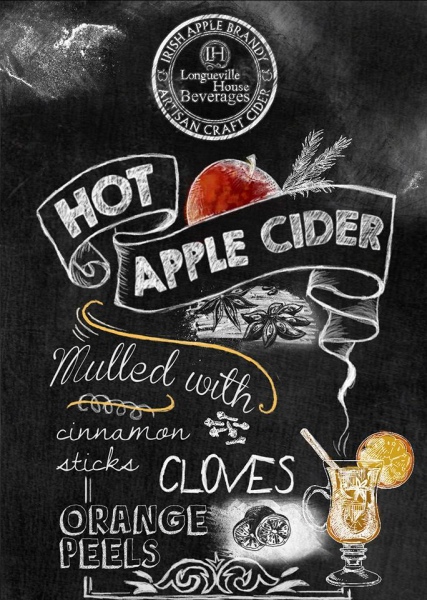 IRISH APPLE BRANDY
LH
Longueville
House
Beverages
ARTISAN CRAFT CIDER
HOT
APPLE CIDER
Mulled with
cinnamon
sticks
CLOVES
ORANGE
PEELS